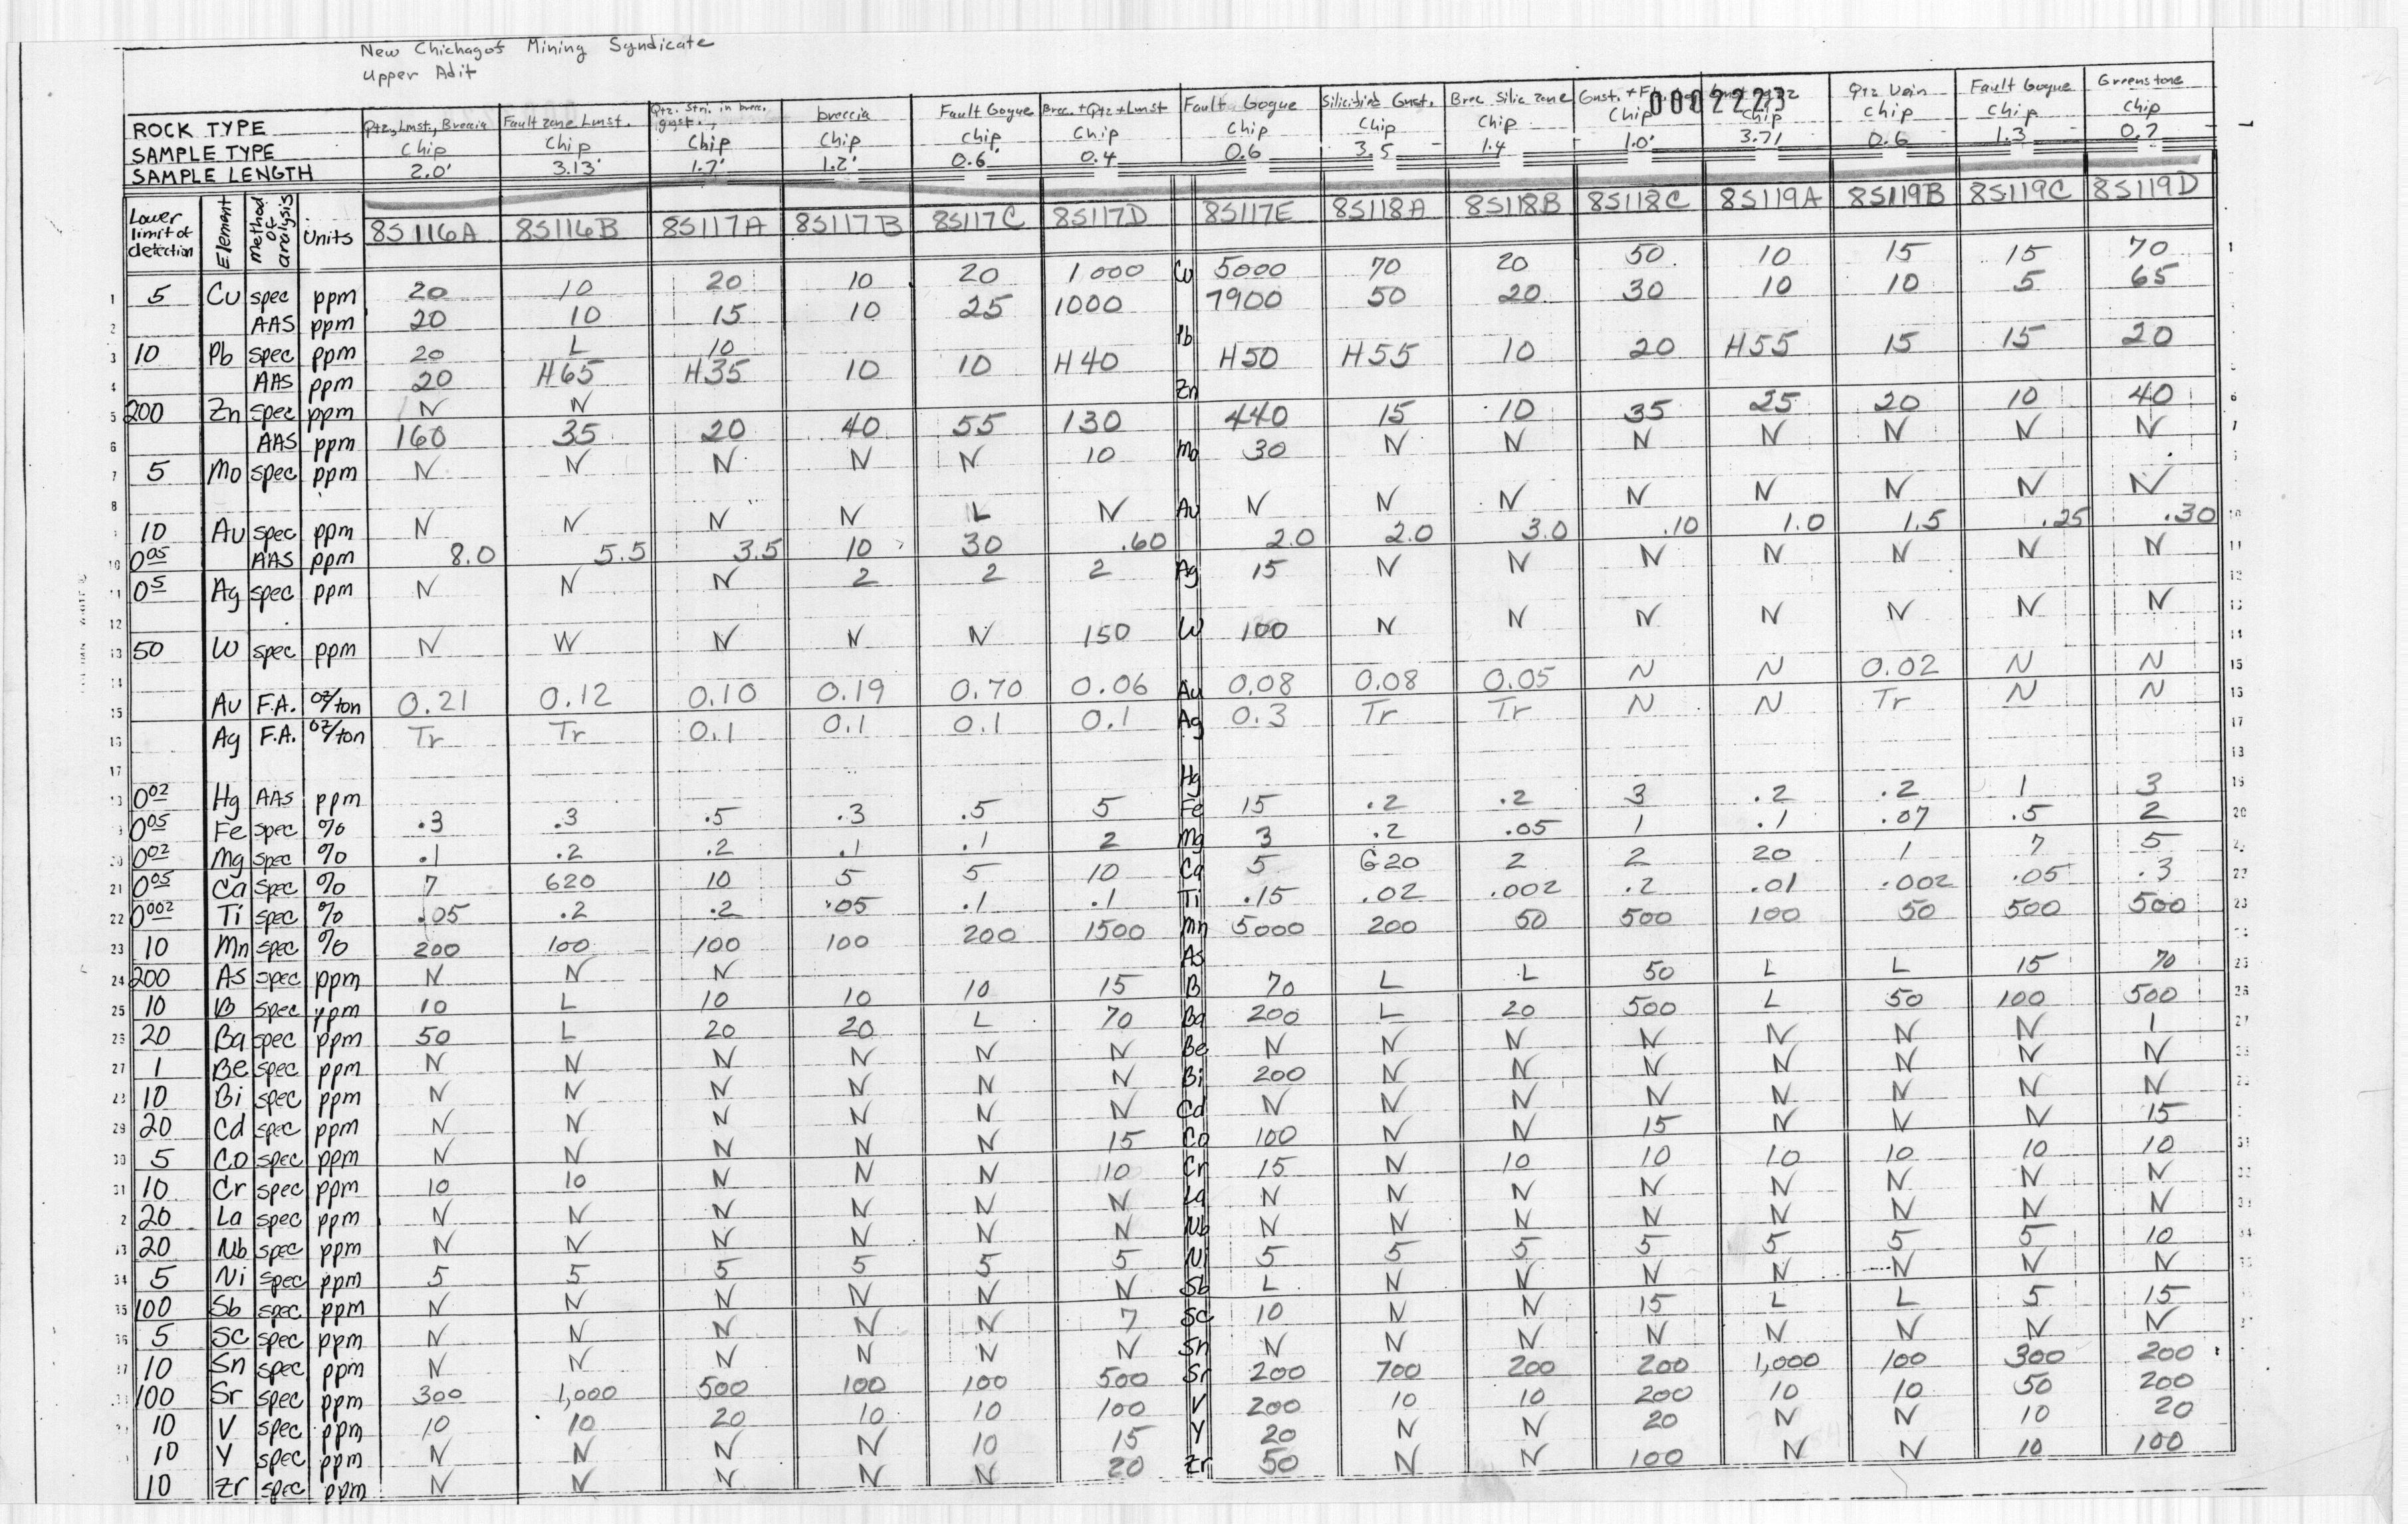 New Chichagof Mining Syndicate
Upper Adit
0002223
ROCK TYPE Qtz., Lmst., Breccia Fault zone Lmst. Qtz. Stri. in brec. breccia Fault Gogue Brec. + Qtz + Lmst Fault Gogue Silicified Gnst. Brec Silic zone Gnst. + Qtz Vein Fault Gogue Greenstone
SAMPLE TYPE Chip Chip Chip Chip Chip Chip Chip Chip Chip Chip Chip Chip Chip Chip
SAMPLE LENGTH 2.0' 3.13' 1.7' 1.2' 0.6' 0.4 0.6 3.5 1.4 1.0' 3.71 0.6 1.3 0.7
Lower limit of detection Element Method of analysis Units 8S116A 8S116B 8S117A 8S117B 8S117C 8S117D 8S117E 8S118A 8S118B 8S118C 8S119A 8S119B 8S119C 8S119D
5 Cu spec ppm 20 10 20 10 20 1000 Cu 5000 70 20 50 10 15 15 70
AAS ppm 20 10 15 10 25 1000 7900 50 20 30 10 10 5 65
10 Pb spec ppm 20 L 10 Pb
AAS ppm 20 H65 H35 10 10 H40 H50 H55 10 20 H55 15 15 20
200 Zn spec ppm N N Zn
AAS ppm 160 35 20 40 55 130 440 15 10 35 25 20 10 40
5 Mo spec ppm N N N N N 10 Mo 30 N N N N N N N
10 Au spec ppm N N N N L N Au N N N N N N N N
0.05 AAS ppm 8.0 5.5 3.5 10 30 .60 2.0 2.0 3.0 .10 1.0 1.5 .25 .30
0.5 Ag spec ppm N N N 2 2 2 Ag 15 N N N N N N N
50 W spec ppm N W N N N 150 W 100 N N N N N N N
Au F.A. oz/ton 0.21 0.12 0.10 0.19 0.70 0.06 Au 0.08 0.08 0.05 N N 0.02 N N
Ag F.A. oz/ton Tr Tr 0.1 0.1 0.1 0.1 Ag 0.3 Tr Tr N N Tr N N
0.02 Hg AAS ppm Hg
0.05 Fe spec % .3 .3 .5 .3 .5 5 Fe 15 .2 .2 3 .2 .2 1 3
0.02 Mg spec % .1 .2 .2 .1 .1 2 Mg 3 .2 .05 1 .1 .07 .5 2
0.05 Ca spec % 7 G20 10 5 5 10 Ca 5 G20 2 2 20 1 7 5
0.002 Ti spec % .05 .2 .2 .05 .1 .1 Ti .15 .02 .002 .2 .01 .002 .05 .3
10 Mn spec % 200 100 100 100 200 1500 Mn 5000 200 50 500 100 50 500 500
200 As spec ppm N N N As
10 B spec ppm 10 L 10 10 10 15 B 70 L L 50 L L 15 70
20 Ba spec ppm 50 L 20 20 L 70 Ba 200 L 20 500 L 50 100 500
1 Be spec ppm N N N N N N Be N N N N N N N 1
10 Bi spec ppm N N N N N N Bi 200 N N N N N N N
20 Cd spec ppm N N N N N N Cd N N N N N N N N
5 Co spec ppm N N N N N 15 Co 100 N N 15 N N N 15
10 Cr spec ppm 10 10 N N N 10 Cr 15 N 10 10 10 10 10 10
20 La spec ppm N N N N N N La N N N N N N N N
20 Nb spec ppm N N N N N N Nb N N N N N N N N
5 Ni spec ppm 5 5 5 5 5 5 Ni 5 5 5 5 5 5 5 10
100 Sb spec ppm N N N N N N Sb L N N N N N N N
5 Sc spec ppm N N N N N 7 Sc 10 N N 15 L L 5 15
10 Sn spec ppm N N N N N N Sn N N N N N N N N
100 Sr spec ppm 300 1,000 500 100 100 500 Sr 200 700 200 200 1,000 100 300 200
10 V spec ppm 10 10 20 10 10 100 V 200 10 10 200 10 10 50 200
10 Y spec ppm N N N N 10 15 Y 20 N N 20 N N 10 20
10 Zr spec ppm N N N N N 20 Zr 50 N N 100 N N 10 100